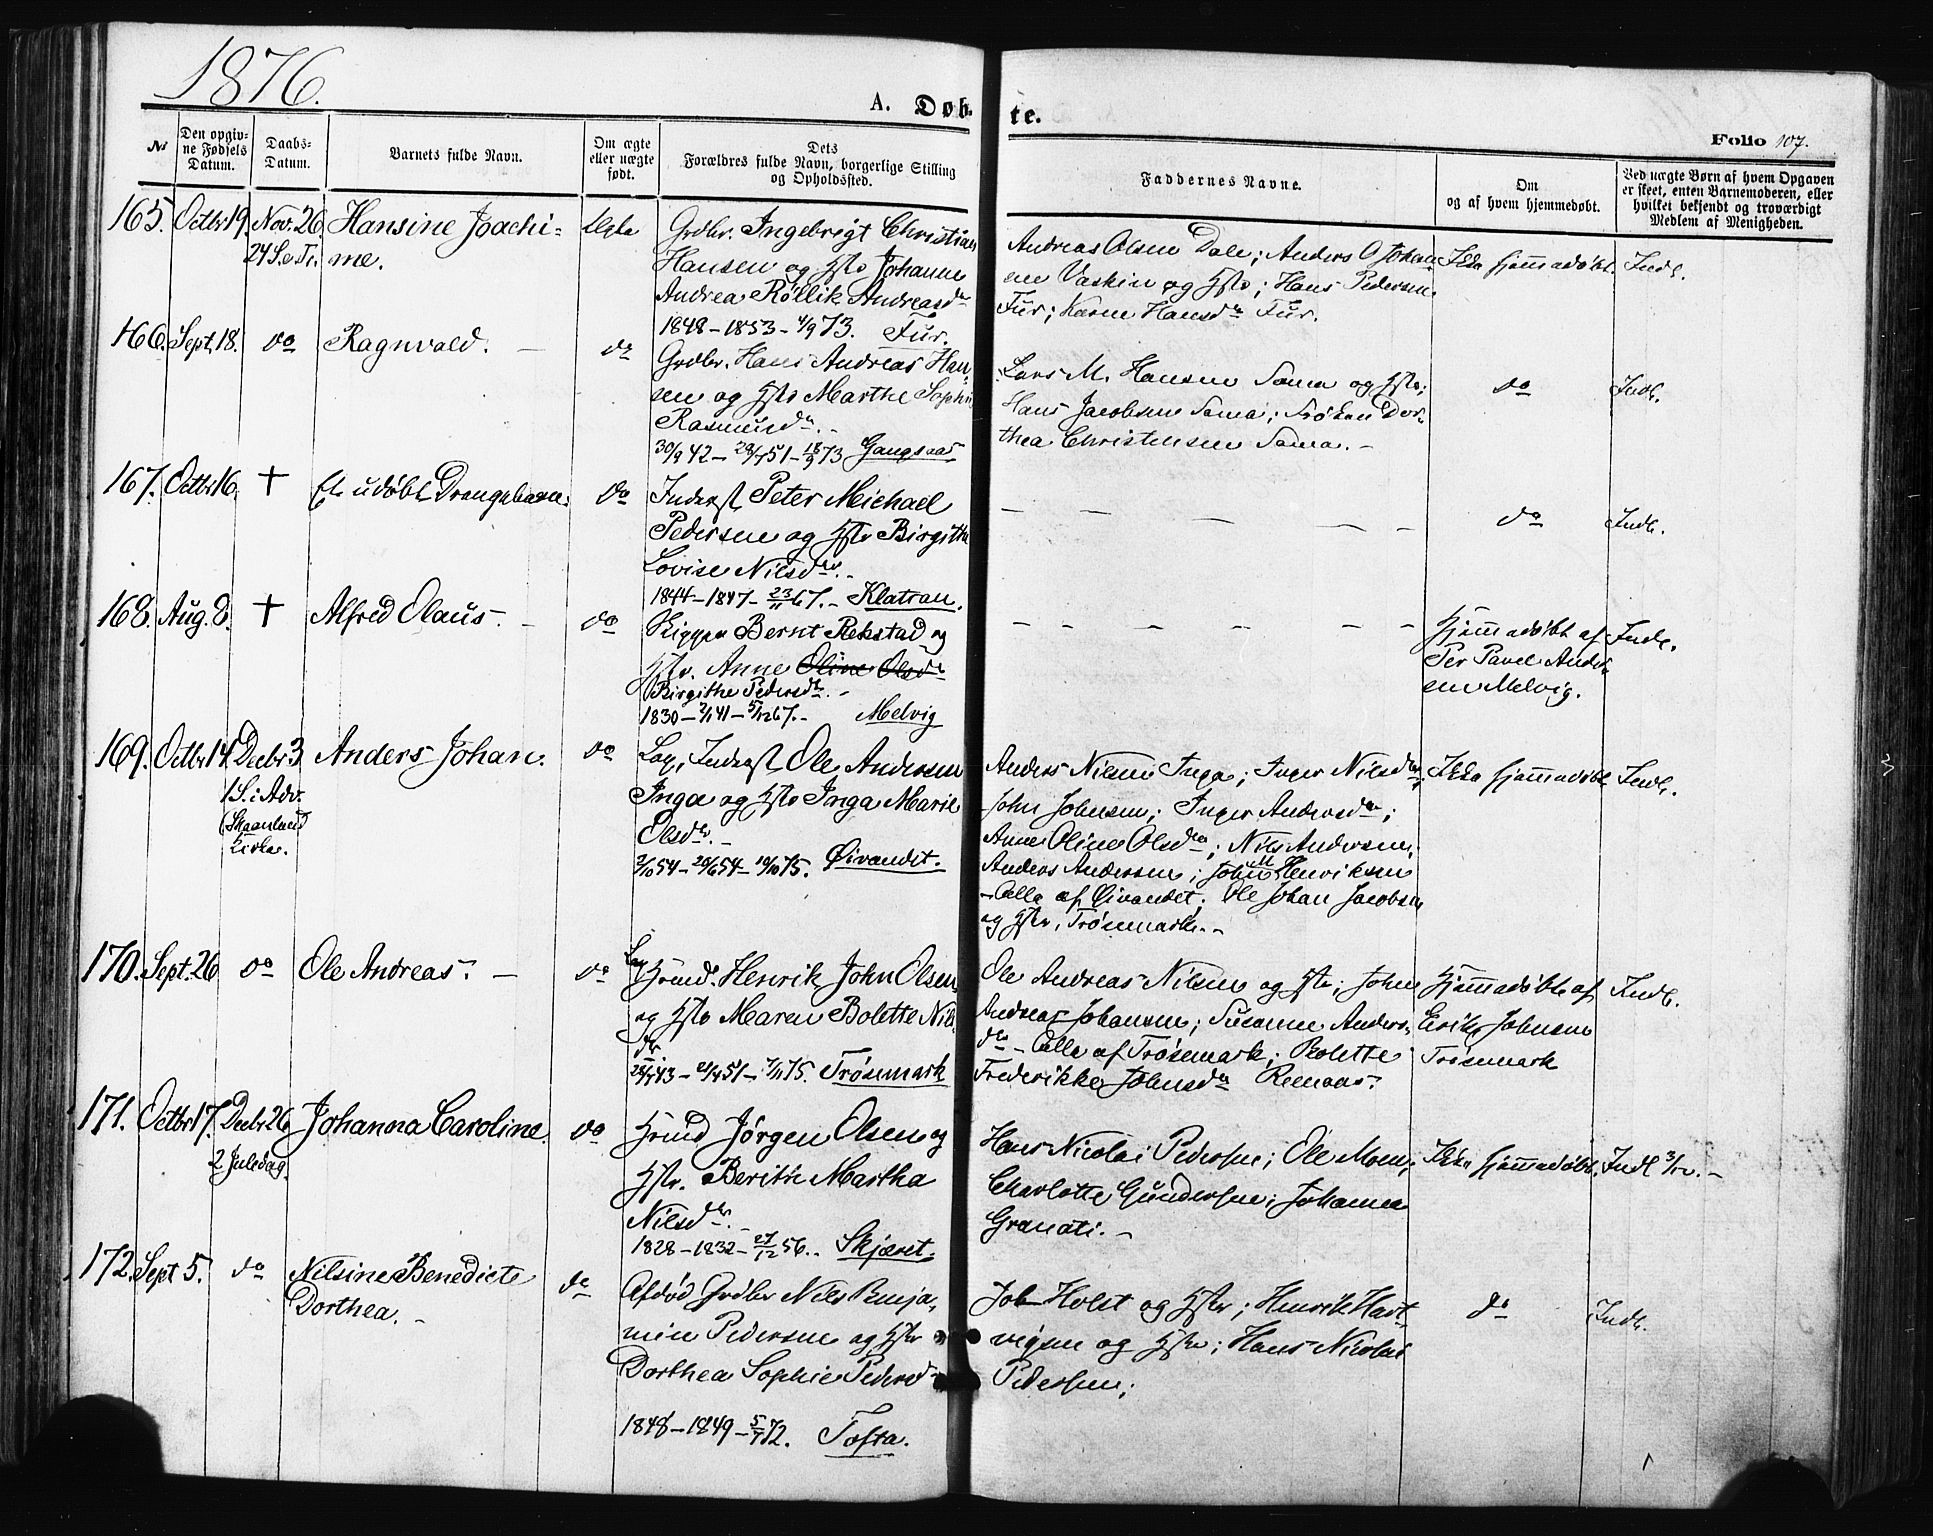 1876.
A. Døbte.
Folio 107.
№
Den opgivne Fødsels Datum.
Daabs-Datum.
Barnets fulde Navn.
Om ægte eller uægte født.
Dets Forældres fulde Navn, borgerlige Stilling og Opholdssted.
Faddernes Navne.
Om og af hvem hjemmedøbt.
Ved uægte Børn af hvem Opgaven er skeet, enten Barnemoderen, eller hvilket bekjendt og troværdigt Medlem af Menigheden.
165. Octbr 19. Nov. 26. Hansine Joachi-
24 S. e. Tr. me.
Ægte
Grdbr. Ingebrigt Christian
Hansen og Hstr Johanne
Andrea Røllik Andreasdr
1848 – 1853 – 4/9 73. Fur.
Andreas Olsen Dale; Anders O Johan-
sen Vaskin og Hstr; Hans Pedersen
Fur; Karen Hansdr Fur.
Ikke hjemmedøbt.
Indl.
166. Sept. 18. do Ragnvald. –
do
Grdbr. Hans Andreas Han-
sen og Hstr Marthe Sophie
Rasmusdr. –
30/9 42 – 29/7 51 – 18/9 73 Gangsaas
Lars M. Hansen Sama og Hstr;
Hans Jacobsen Sama; Frøken Dor-
thea Christensen Sama. –
do
Indl.
167. Octbr 16. † Et udøbt Drengebarn.
do
Inderst Peter Michael
Pedersen og Hstr Birgithe
Lovise Nilsdr. –
1844 – 1847 – 23/11 67. – Klattran.
– – – – – –
do
Indl.
168. Aug. 8. † Alfred Olaus. –
do
Skipper Bernt Rekstad og
Hstr. Anne Oline Olsdr
Birgithe Pedersdr. –
1830 – 2/1 41 – 5/12 67. – Melvig
– – – – – –
Hjemmedøbt af
Per Pavel Ander-
sen Melvig.
Indl.
169. Octbr 14. Decbr 3. Anders Johan.
1 S. i Adv.
(Skaanland
Kirke.
do
Lap, Inderst Ole Andersen
Inga og Hstr Inga Marie
Olsdr. –
2/10 54 – 20/6 54 – 10/10 75. Øivandet.
Anders Nilsen Inga; Inger Nilsdr;
John Johnsen; Inger Andersdr;
Anne Oline Olsdr; Nils Andersen;
Anders Andersen; John Henriksen
– Alle af Øivandet; Ole Johan Jacobsen
og Hstr, Trøsemark. –
Ikke hjemmedøbt
Indl.
170. Sept. 26. do Ole Andreas. –
do
Lap
Husmd. Henrik John Olsen
og Hstr Maren Bolette Nils-
dr
25/7 43 – 21/4 51 – 7/11 75. Trøsemark
Ole Andreas Nilsen og Hstr; John
Andreas Johansen; Susanne Anders-
dr – Alle af Trøsemark; Bolette
Frederikke Johnsdr Remaas.
Hjemmedøbt af
Erik Johnsen
Trøsemark
Indl.
171. Octbr 17. Decbr 26. Johanna Caroline.
2 Juledag.
do
Husmd Jørgen Olsen og
Hstr. Berith Martha
Nilsdr. –
1828 – 1832 – 27/12 56. Skjæret.
Hans Nicolai Pedersen; Ole Moen;
Charlotte Gundersen; Johanna
Granati. –
Ikke hjemmedøbt.
Indl 3/12. –
172. Sept 5. do Nilsine Benedicte
Dorthea. –
do
Afdød Grdbr Nils Benja-
min Pedersen og Hstr
Dorthea Sophie Pedersdr
1848 – 1849 – 5/7 72. Tofta.
Job Holst og Hstr; Henrik Hart-
vigsen og Hstr; Hans Nicolai
Pedersen;
do
Indl.